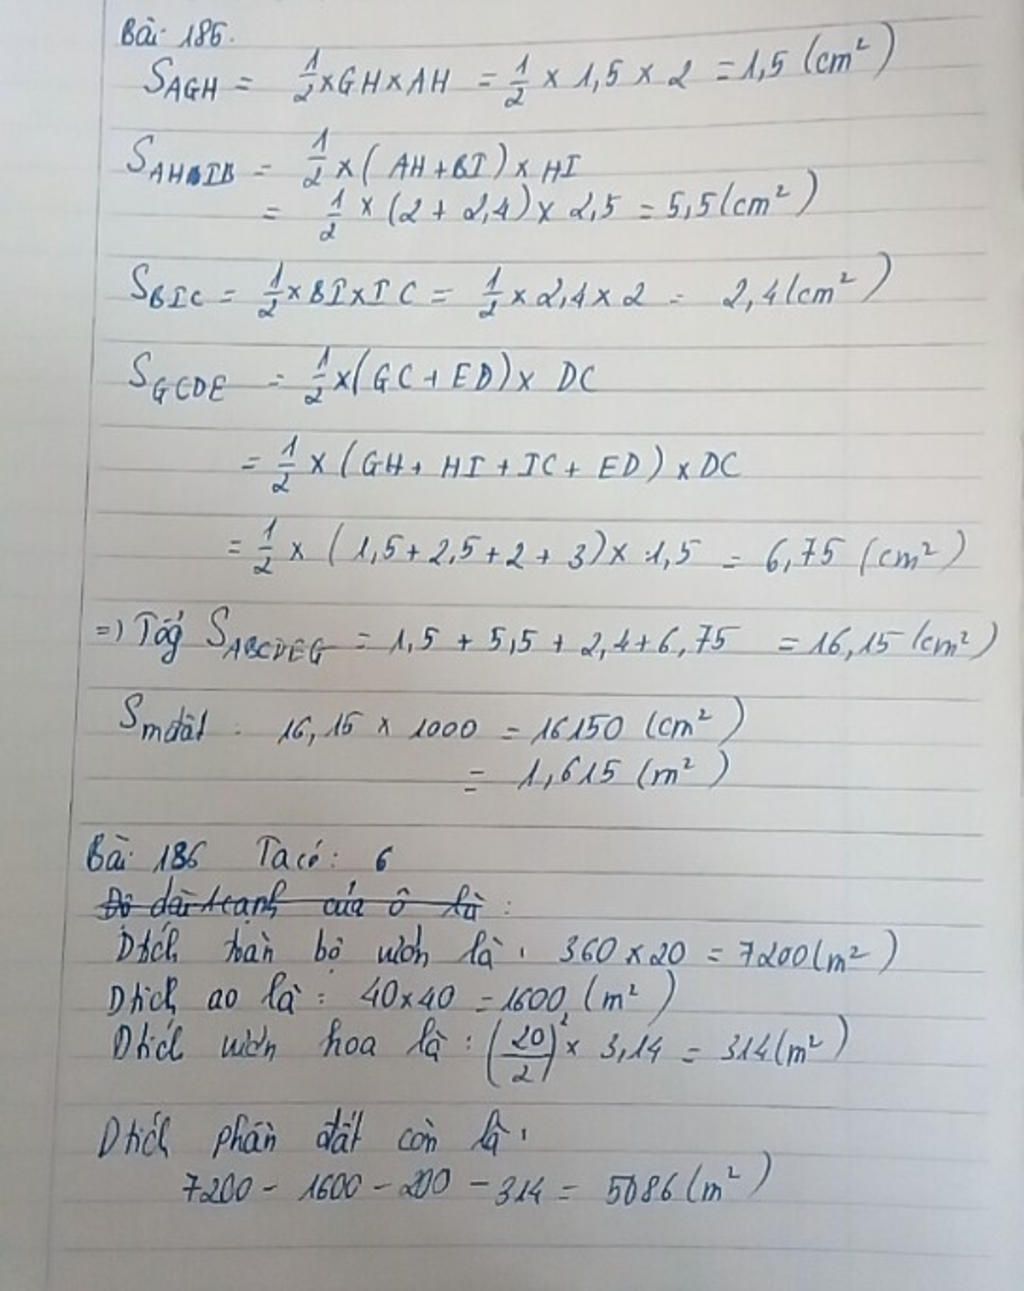 Bài 185.
S AGH = 1/2 × GH × AH = 1/2 × 1,5 × 2 = 1,5 (cm²)
S AHIB = 1/2 × ( AH + BI ) × HI
= 1/2 × (2 + 2,4) × 2,5 = 5,5 (cm²)
S BIC = 1/2 × BI × IC = 1/2 × 2,4 × 2 = 2,4 (cm²)
S GCDE = 1/2 × (GC + ED) × DC
= 1/2 × (GH + HI + IC + ED) × DC
= 1/2 × (1,5 + 2,5 + 2 + 3) × 1,5 = 6,75 (cm²)
=) Tổg S ABCDEG = 1,5 + 5,5 + 2,4 + 6,75 = 16,15 (cm²)
S mđất = 16,15 × 1000 = 16150 (cm²)
= 1,615 (m²)
Bài 186 Ta có: 6
Độ dài 1 cạnh của ô là :
Dtích toàn bộ vườn là : 360 × 20 = 7200 (m²)
Dtích ao là : 40 × 40 = 1600 (m²)
Dtích vườn hoa là : (20/2)² × 3,14 = 314 (m²)
Dtích phần đất còn là :
7200 - 1600 - 200 - 314 = 5086 (m²)